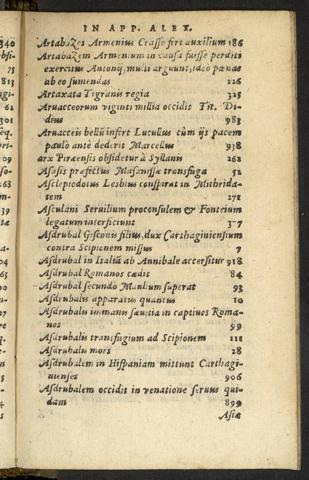 IN APP. ALEX.
Artabazes Armenius Crasso fert auxilium 186
Artabazem Armenium in causa fuisse perditi
exercitus Antonij, multi arguunt, ideo poenas
ab eo sumendas 226
Artaxata Tigranis regia 325
Aruacceorum viginti millia occidit Tit. Di-
dius 983
Aruacceis bellū infert Lucullus cùm ijs pacem
paulò antè dederit Marcellus 938
arx Piraensis obsidetur à Syllanis 262
Asasis praefectus Masanissae transfuga 51
Asclepiodotus Lesbius conspirat in Mithrida-
tem 271
Asculani Seruilium proconsulem & Fonteium
legatum interficiunt 377
Asdrubal Gisconis filius, dux Carthaginiensium
contra Scipionem missus 7
Asdrubal in Italiā ab Annibale accersitur 918
Asdrubal Romanos caedit 84
Asdrubal secundo Manlium superat 93
Asdrubalis apparatus quantus 10
Asdrubalis immanis saeuitia in captiuos Roma-
nos 99
Asdrubalis transfugium ad Scipionem 111
Asdrubalis mors 28
Asdrubalem in Hispaniam mittunt Carthagi-
nienses 906
Asdrubalem occidit in venatione seruus qui-
dam 899
Asiae
340
bsi-
75
813
es
60
331
101
eq.
hri
31
58
on-
39
ed-
57
ro